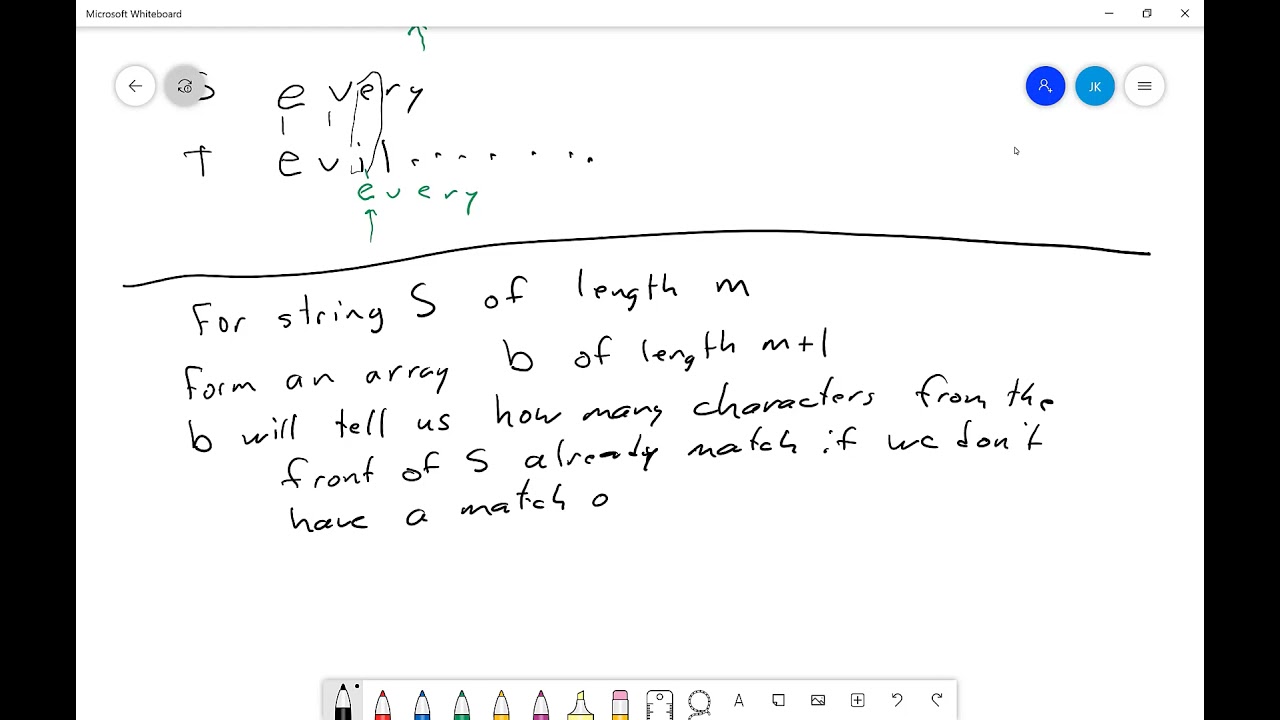 Microsoft Whiteboard
S every
JK
T evil . . . . . . .
every
For string S of length m
Form an array b of length m+1
b will tell us how many characters from the
front of S already match if we don't
have a match o
A